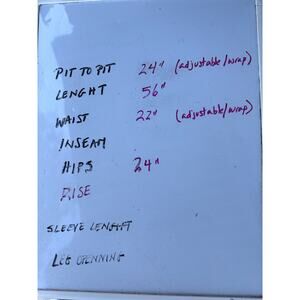 PIT TO PIT 24" (adjustable/wrap)
LENGHT 56"
WAIST 22" (adjustable/wrap)
INSEAM
HIPS 24"
RISE
SLEEVE LENGHT
LEG OPENNING